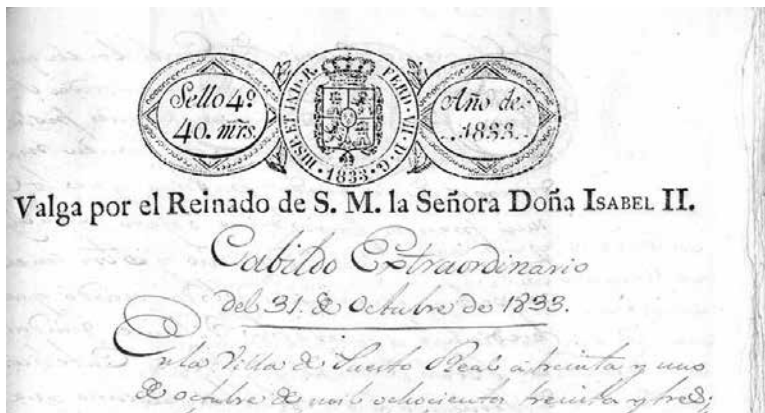 Sello 4º
40. mrs.
HISP. ET IND. R. FERD. VII. D. G. 1833.
Año de
1833.
Valga por el Reinado de S. M. la Señora Doña ISABEL II.
Cabildo Extraordinario
del 31. de Octubre de 1833.
En la Villa de Puerto Real a treinta y uno
de octubre de mil ochocientos treinta y tres;